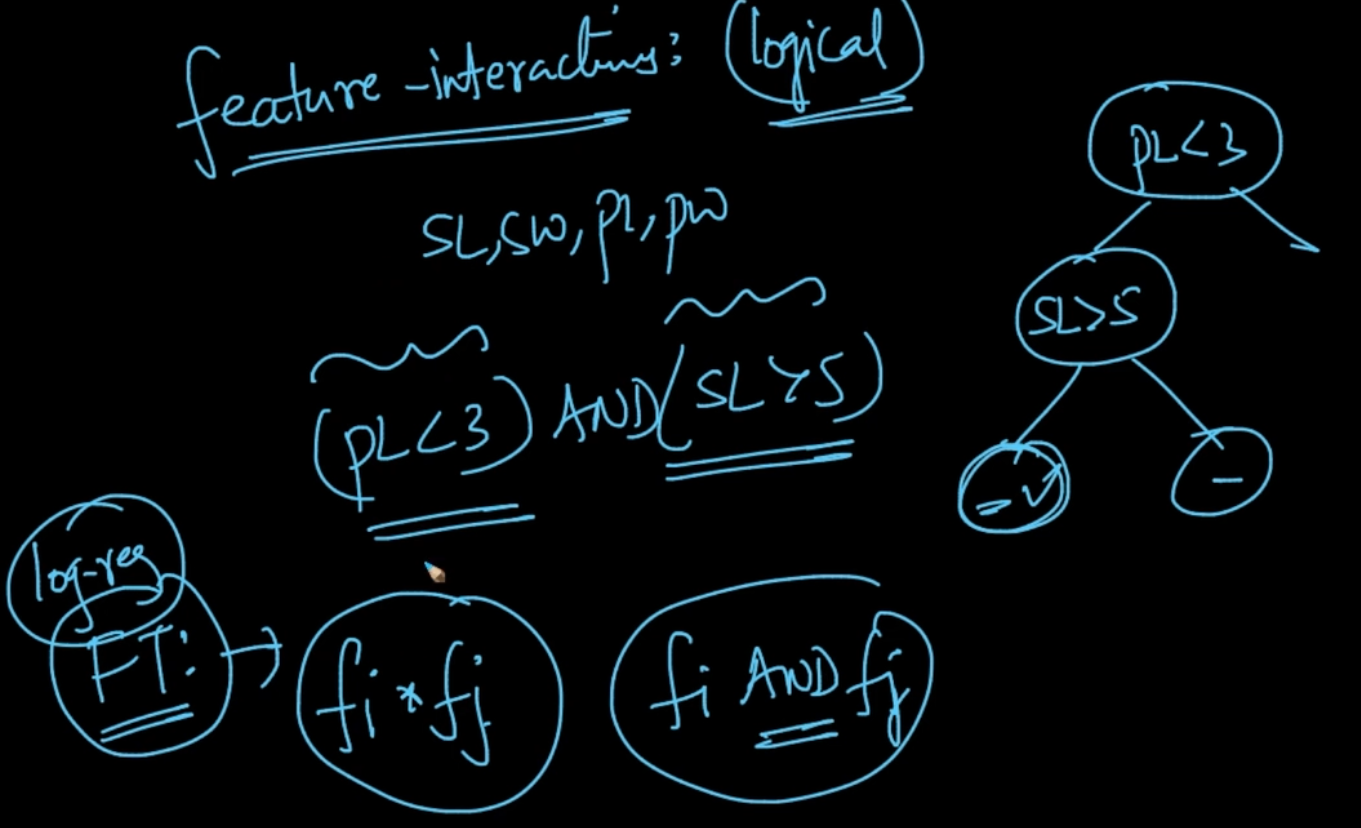 feature-interactions: (logical)
SL, SW, PL, PW
(PL<3) AND (SL>5)
PL<3
SL>5
log-reg
FT: → fi * fj
fi AND fj